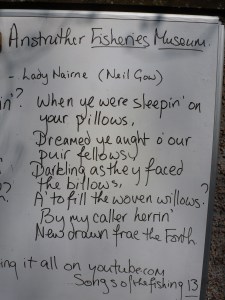 Anstruther Fisheries Museum.
- Lady Nairne (Neil Gow)
in'? When ye were sleepin' on
your pillows,
Dreamed ye aught o' our
puir fellows,
Darkling as they faced
the billows,
A' to fill the woven willows.
By my caller herrin'
New drawn frae the Forth
ing it all on youtube.com
Songs of the fishing 13